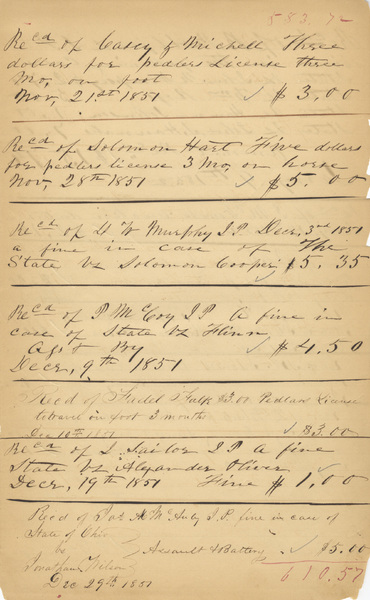 583.72
Recd of Casey & Michell Three
dollars for pedlers License three
Mo, on foot
Nov, 21st 1851 $3.00
Recd of Solomon Hart Five dollars
for pedlers license 3 Mo, on horse
Nov, 28th 1851 $5.00
Recd of W Murphy J P Decr, 3rd 1851
a fine in case of The
State vs Solomon Cooper $5.35
Recd of P McCoy J P A fine in
case of State vs Flinn
Decr, 9th 1851 $4.50
Recd of Fadel Falk $3.00 Pedlars License
to travel on foot 3 months
Dec 1851 $3.00
Recd of S, Sailor J P A fine
State vs Alexander Oliver
Decr, 19th 1851 Fine $1,00
Recd of J.P. fine in case of
State of Ohio
vs Assault & Battery $5.00
Jonathan Nelson
Dec 29th 1851 610.57